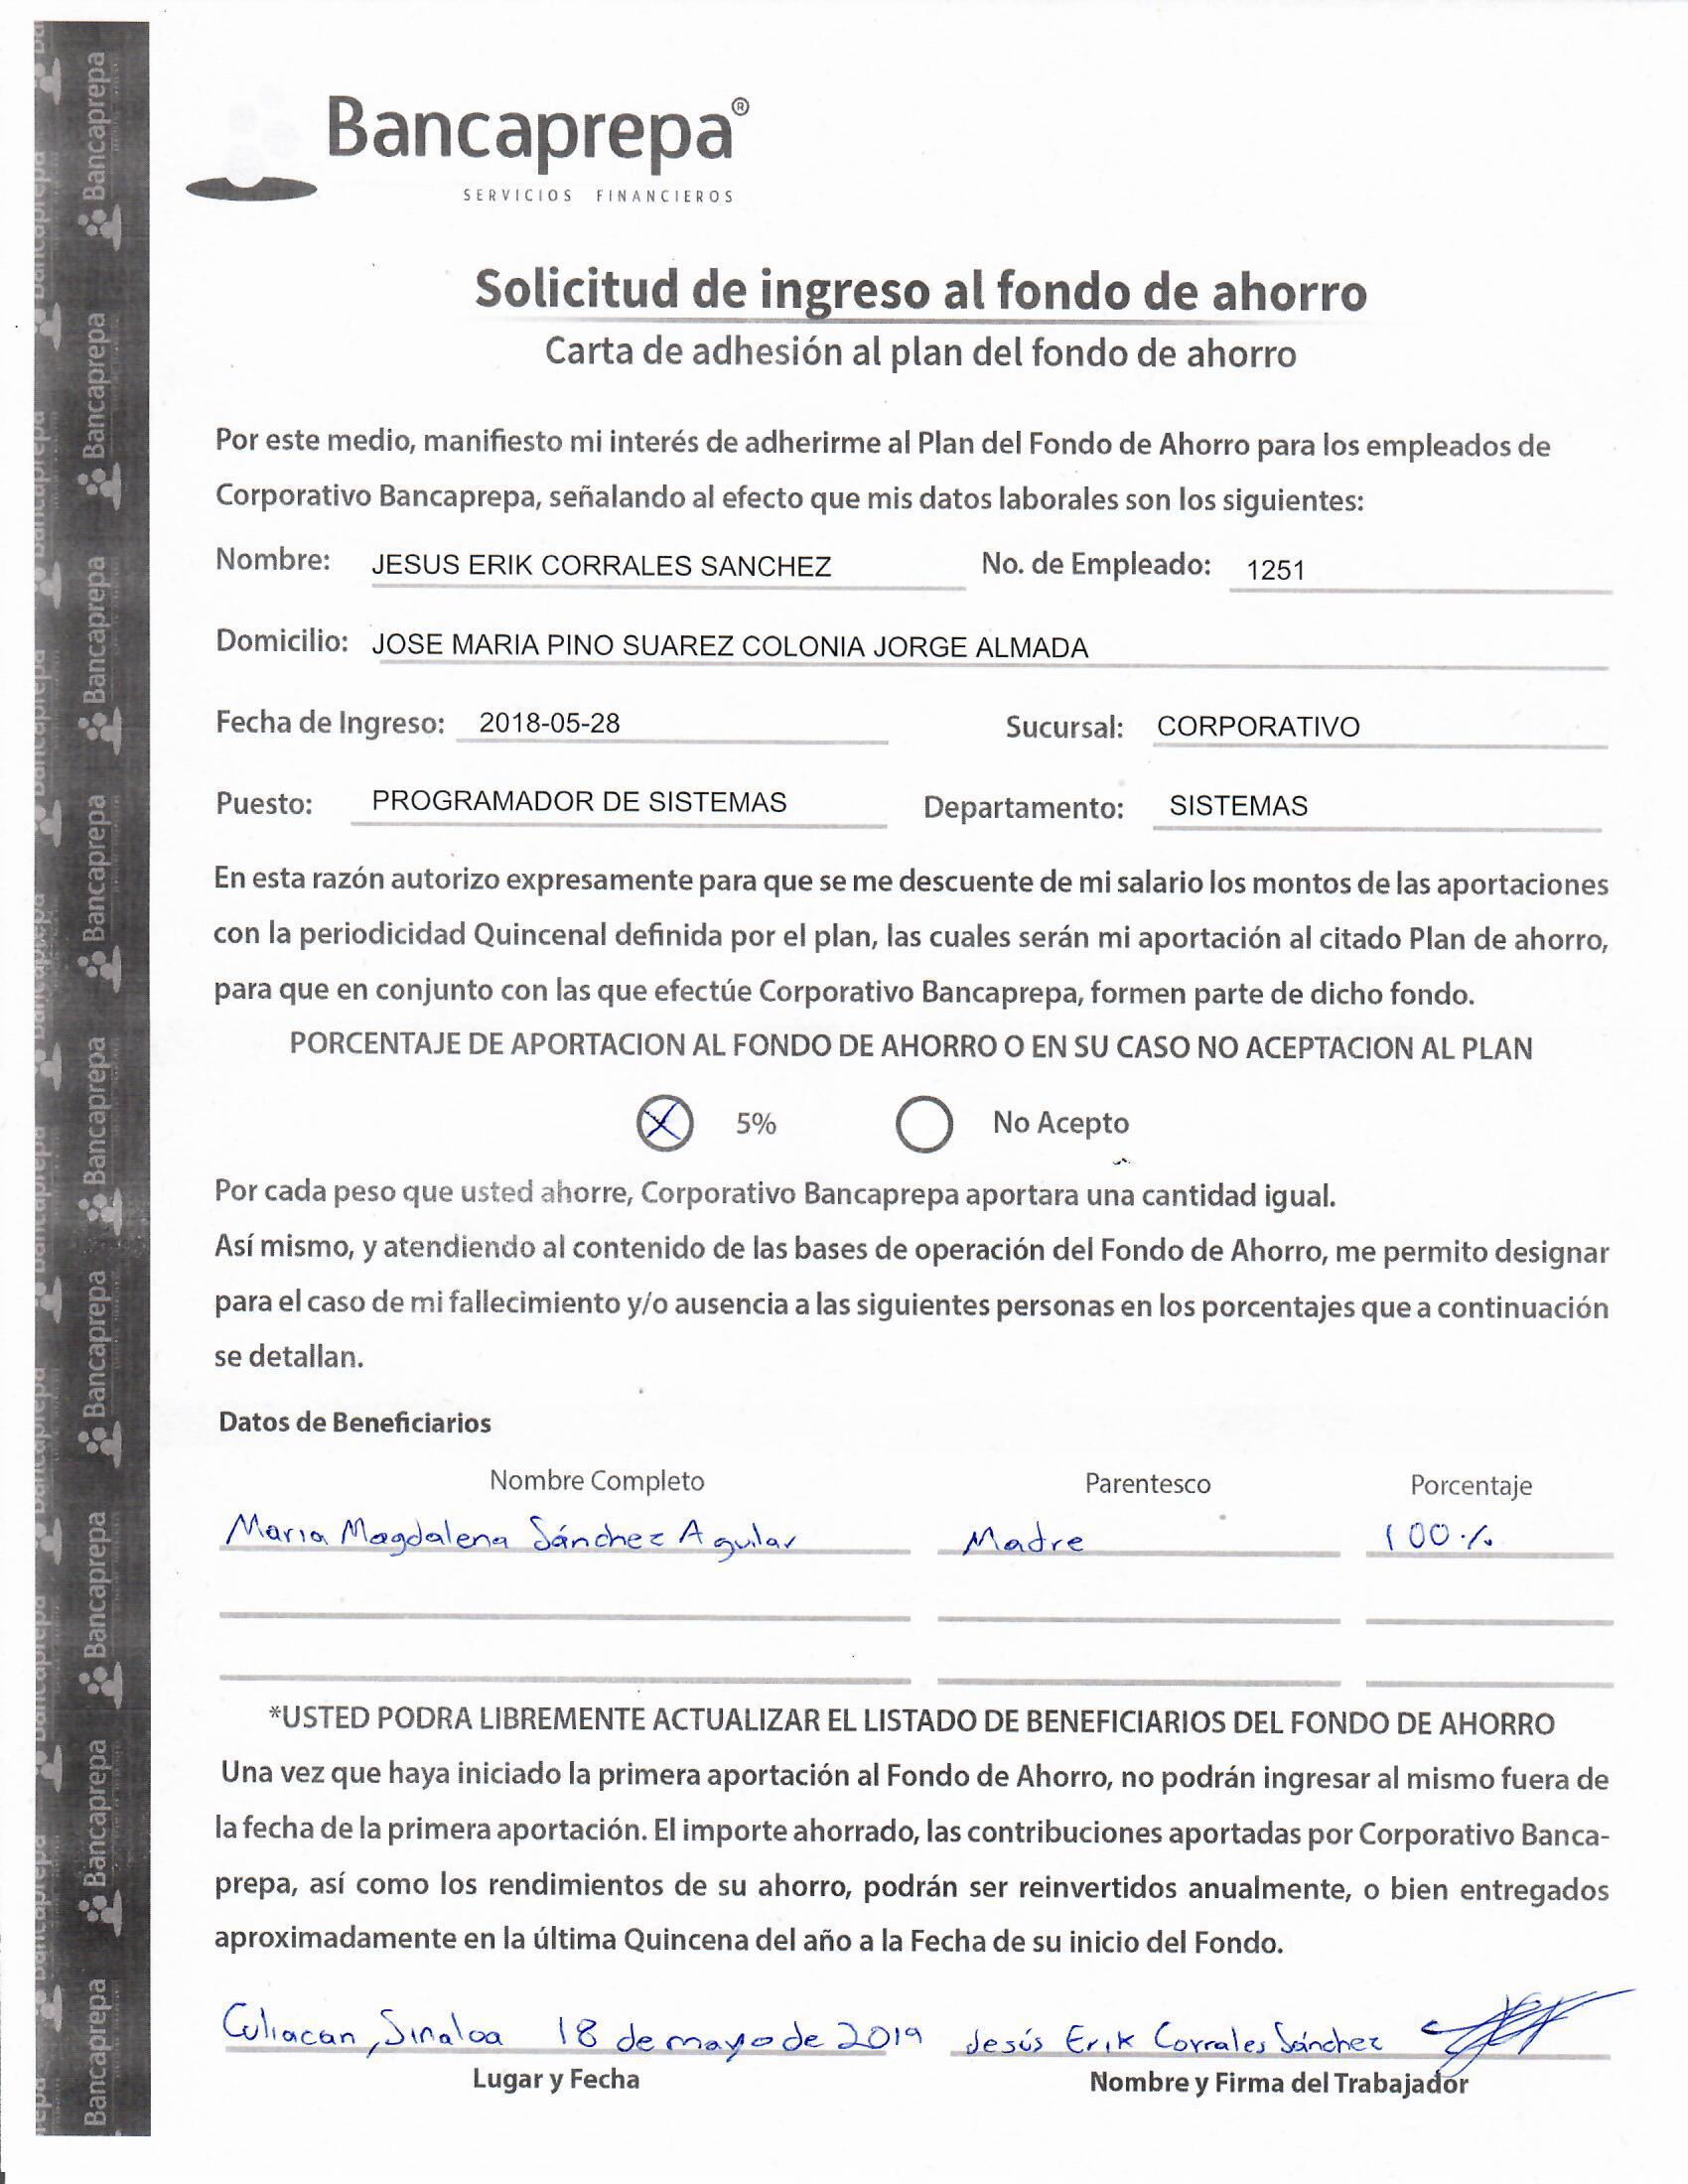 Bancaprepa®
SERVICIOS FINANCIEROS
Solicitud de ingreso al fondo de ahorro
Carta de adhesión al plan del fondo de ahorro
Por este medio, manifiesto mi interés de adherirme al Plan del Fondo de Ahorro para los empleados de
Corporativo Bancaprepa, señalando al efecto que mis datos laborales son los siguientes:
Nombre: JESUS ERIK CORRALES SANCHEZ No. de Empleado: 1251
Domicilio: JOSE MARIA PINO SUAREZ COLONIA JORGE ALMADA
Fecha de Ingreso: 2018-05-28 Sucursal: CORPORATIVO
Puesto: PROGRAMADOR DE SISTEMAS Departamento: SISTEMAS
En esta razón autorizo expresamente para que se me descuente de mi salario los montos de las aportaciones
con la periodicidad Quincenal definida por el plan, las cuales serán mi aportación al citado Plan de ahorro,
para que en conjunto con las que efectúe Corporativo Bancaprepa, formen parte de dicho fondo.
PORCENTAJE DE APORTACION AL FONDO DE AHORRO O EN SU CASO NO ACEPTACION AL PLAN
X 5% No Acepto
Por cada peso que usted ahorre, Corporativo Bancaprepa aportara una cantidad igual.
Así mismo, y atendiendo al contenido de las bases de operación del Fondo de Ahorro, me permito designar
para el caso de mi fallecimiento y/o ausencia a las siguientes personas en los porcentajes que a continuación
se detallan.
Datos de Beneficiarios
Nombre Completo Parentesco Porcentaje
Maria Magdalena Sánchez Aguilar Madre 100%
*USTED PODRA LIBREMENTE ACTUALIZAR EL LISTADO DE BENEFICIARIOS DEL FONDO DE AHORRO
Una vez que haya iniciado la primera aportación al Fondo de Ahorro, no podrán ingresar al mismo fuera de
la fecha de la primera aportación. El importe ahorrado, las contribuciones aportadas por Corporativo Banca-
prepa, así como los rendimientos de su ahorro, podrán ser reinvertidos anualmente, o bien entregados
aproximadamente en la última Quincena del año a la Fecha de su inicio del Fondo.
Culiacan, Sinaloa 18 de mayo de 2019 Jesús Erik Corrales Sánchez
Lugar y Fecha Nombre y Firma del Trabajador
Bancaprepa
Bancaprepa
Bancaprepa
Bancaprepa
Bancaprepa
Bancaprepa
Bancaprepa
Bancaprepa
Bancaprepa